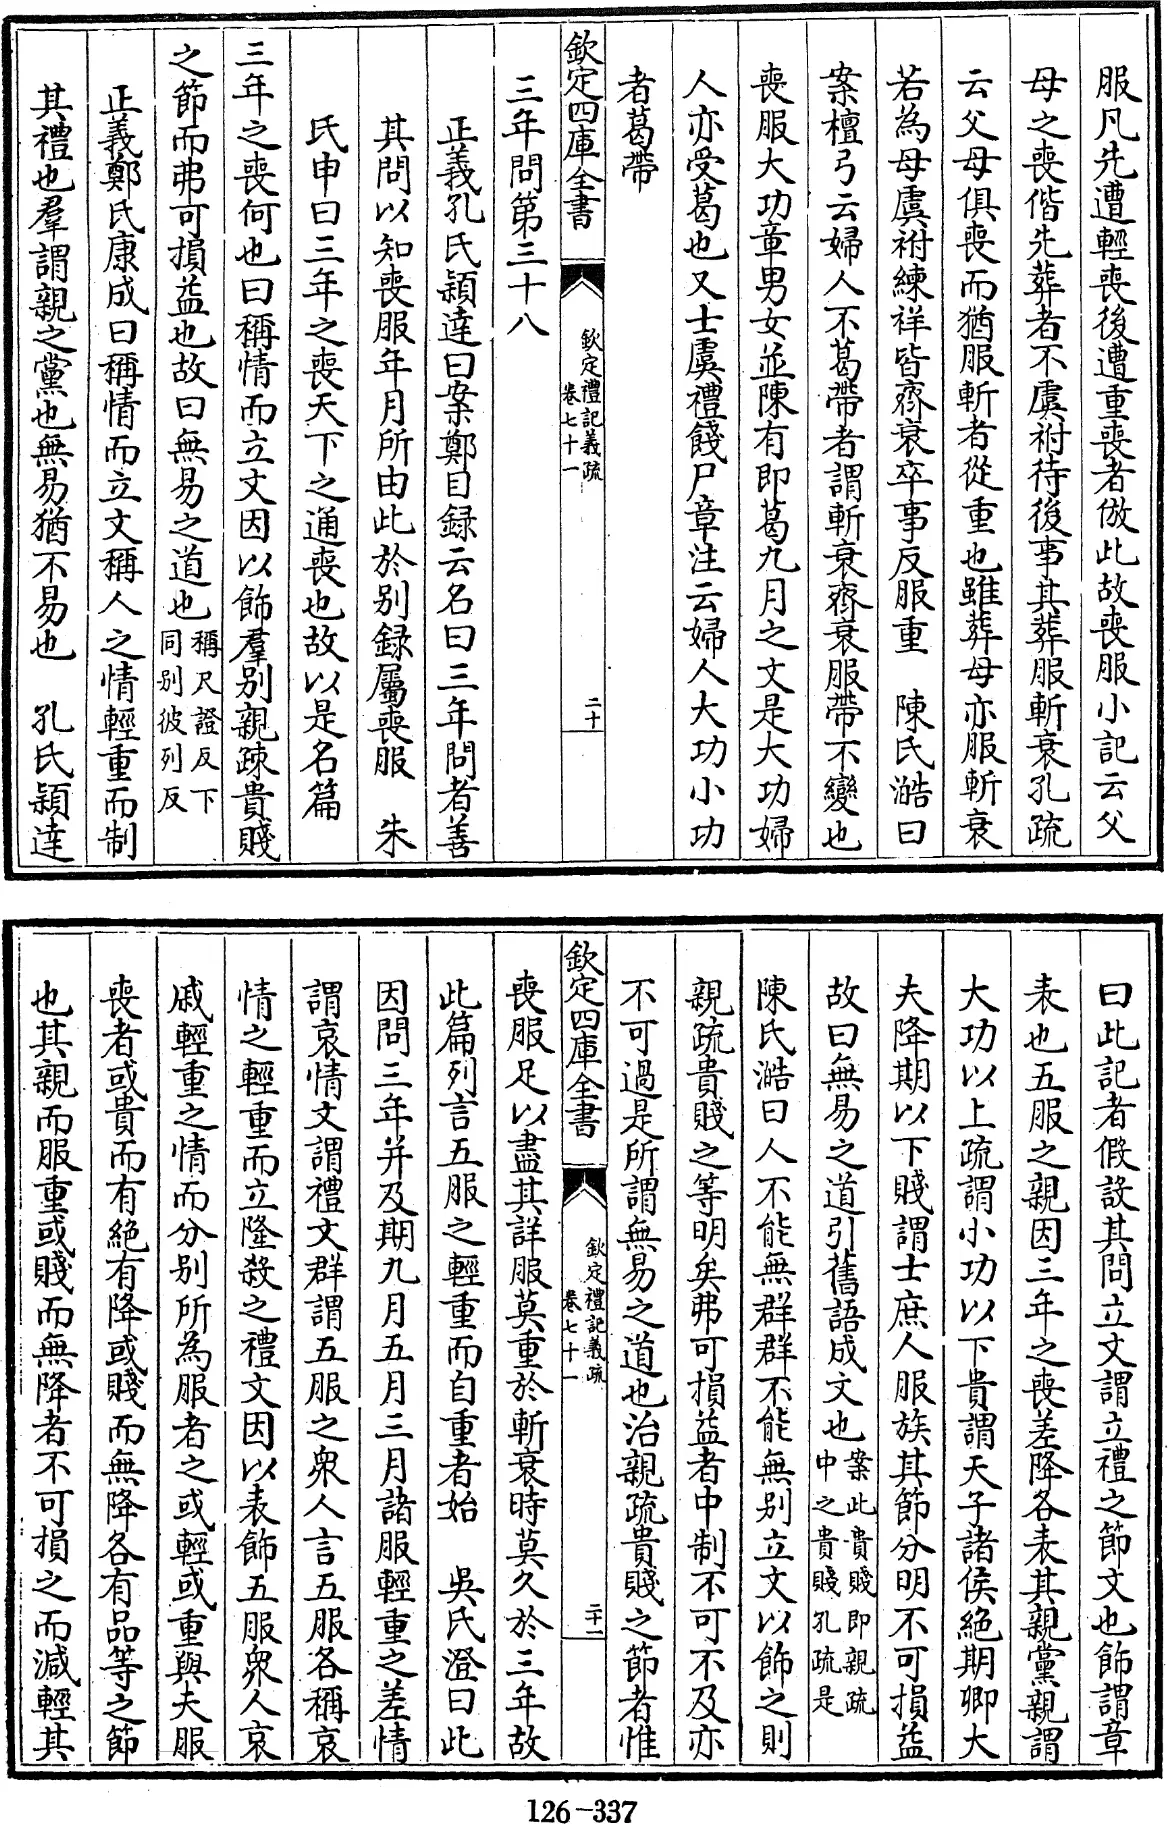 服凡先遭輕喪後遭重喪者倣此故喪服小記云父
母之喪偕先葬者不虞祔待後事其葬服斬衰孔疏
云父母俱喪而猶服斬者從重也雖葬母亦服斬衰
若為母虞祔練祥皆齊衰卒事反服重　陳氏澔曰
案檀弓云婦人不葛帶者謂斬衰齊衰服帶不變也
喪服大功章男女並陳有即葛九月之文是大功婦
人亦受葛也又士虞禮餞尸章注云婦人大功小功
者葛帶
欽定四庫全書
欽定禮記義疏
卷七十一
二十
三年問第三十八
正義孔氏穎達曰案鄭目録云名曰三年問者善
其問以知喪服年月所由此於别録屬喪服　朱
氏申曰三年之喪天下之通喪也故以是名篇
三年之喪何也曰稱情而立文因以飾羣别親疎貴賤
之節而弗可損益也故曰無易之道也稱尺證反下
同别彼列反
正義鄭氏康成曰稱情而立文稱人之情輕重而制
其禮也羣謂親之黨也無易猶不易也　孔氏穎達
曰此記者假設其問立文謂立禮之節文也飾謂章
表也五服之親因三年之喪差降各表其親黨親謂
大功以上疏謂小功以下貴謂天子諸侯絶期卿大
夫降期以下賤謂士庶人服族其節分明不可損益
故曰無易之道引舊語成文也案此貴賤即親疏
中之貴賤孔疏是
陳氏澔曰人不能無群群不能無别立文以飾之則
親疏貴賤之等明矣弗可損益者中制不可不及亦
不可過是所謂無易之道也治親疏貴賤之節者惟
欽定四庫全書
欽定禮記義疏
卷七十一
二十一
喪服足以盡其詳服莫重於斬衰時莫久於三年故
此篇列言五服之輕重而自重者始　吳氏澄曰此
因問三年并及期九月五月三月諸服輕重之差情
謂哀情文謂禮文群謂五服之衆人言五服各稱哀
情之輕重而立隆殺之禮文因以表飾五服衆人哀
戚輕重之情而分别所為服者之或輕或重與夫服
喪者或貴而有絶有降或賤而無降各有品等之節
也其親而服重或賤而無降者不可損之而減輕其
126-337